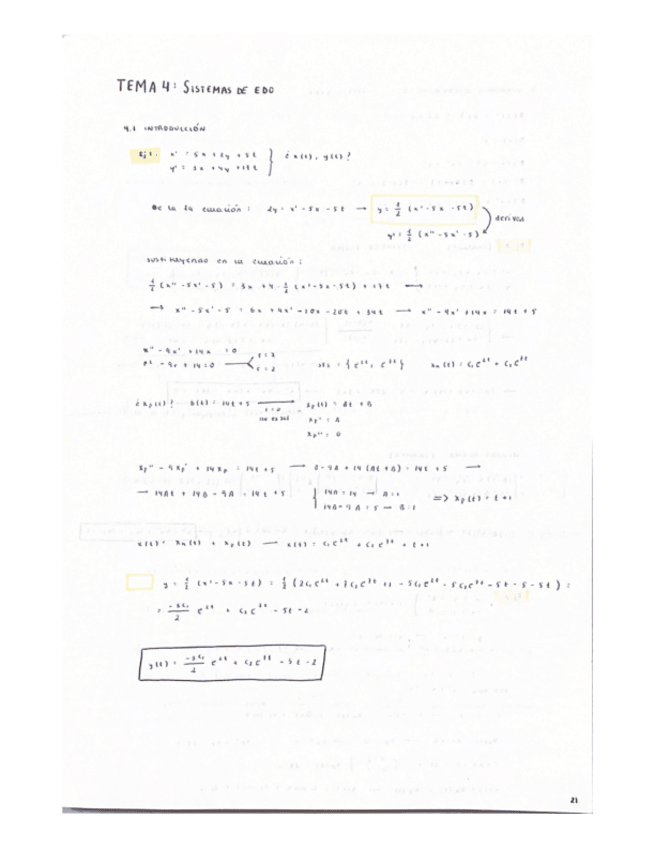 TEMA 4: SISTEMAS DE EDO
4.1 INTRODUCCIÓN
Ej 1. x' = 5x + 2y + 5t } ¿ x(t), y(t) ?
y' = 3x + 4y + 17t
De la 1a ecuación: 2y = x' - 5x - 5t → y = 1/2 (x' - 5x - 5t)
y' = 1/2 (x'' - 5x' - 5) deriva
sustituyendo en la ecuación:
1/2 (x'' - 5x' - 5) = 3x + 4 · 1/2 (x' - 5x - 5t) + 17t →
→ x'' - 5x' - 5 = 6x + 4x' - 20x - 20t + 34t → x'' - 9x' + 14x = 14t + 5
x'' - 9x' + 14x = 0
r² - 9r + 14 = 0 r = 7 r = 2 { e^2t, e^7t } xh(t) = C₁e^2t + C₂e^7t
¿ xp(t) ? b(t) = 14t + 5 → xp(t) = At + B
r = 0 no es sol xp' = A
xp'' = 0
xp'' - 9xp' + 14xp = 14t + 5 → 0 - 9A + 14 (At + B) = 14t + 5 →
→ 14At + 14B - 9A = 14t + 5 { 14A = 14 → A = 1 ⇒ xp(t) = t + 1
14B - 9A = 5 → B = 1
x(t) = xh(t) + xp(t) → x(t) = C₁e^2t + C₂e^7t + t + 1
y = 1/2 (x' - 5x - 5t) = 1/2 (2C₁e^2t + 7C₂e^7t + 1 - 5C₁e^2t - 5C₂e^7t - 5t - 5 - 5t) =
= -3C₁/2 e^2t + C₂e^7t - 5t - 2
y(t) = -3C₁/2 e^2t + C₂e^7t - 5t - 2
21